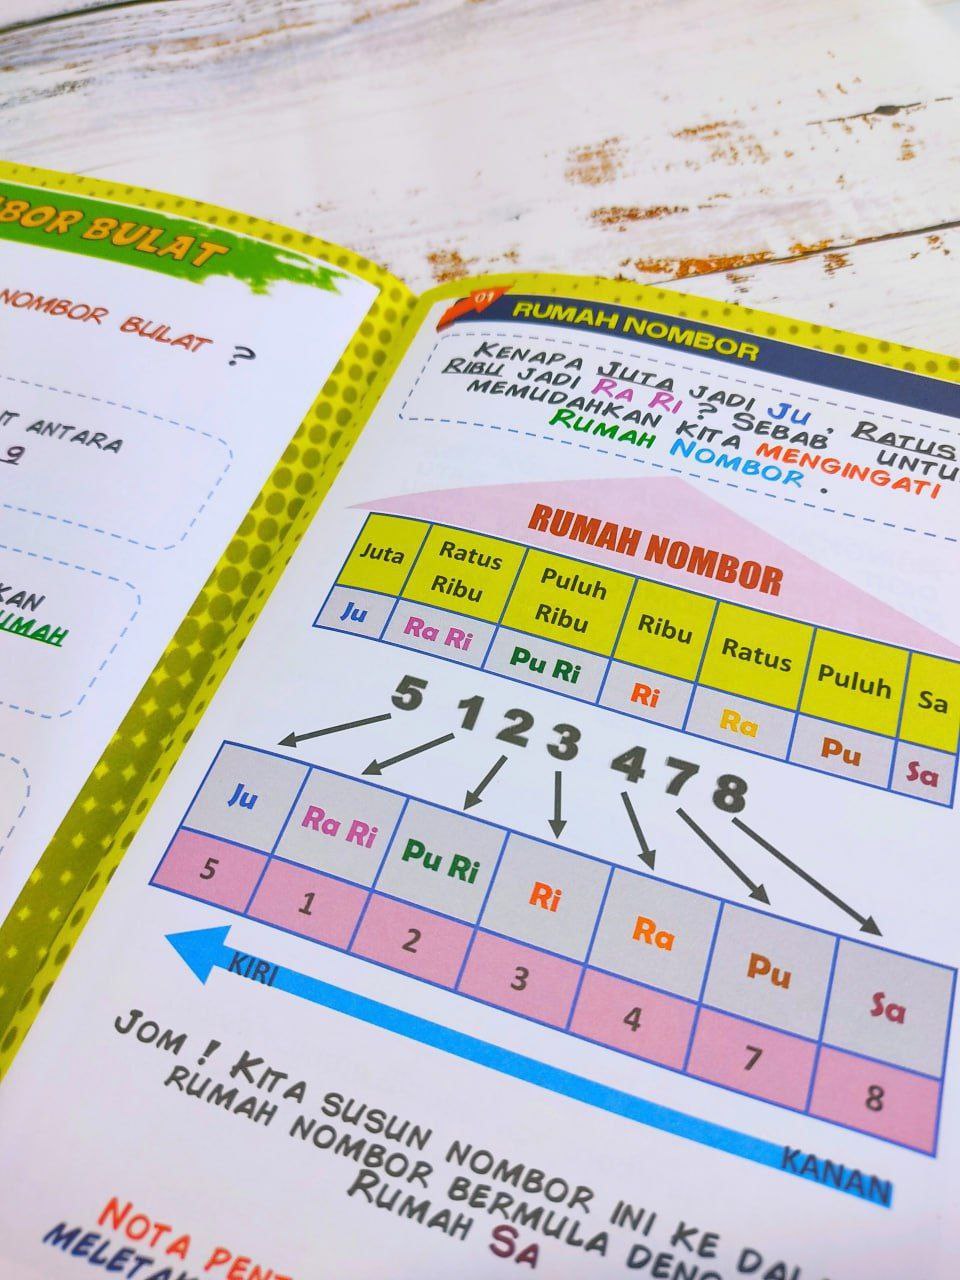 BULAT
NOMBOR BULAT ?
ANTARA
9
01
RUMAH NOMBOR
KENAPA JUTA JADI JU , RATUS
RIBU JADI RA RI ? SEBAB
MEMUDAHKAN KITA MENGINGATI
RUMAH NOMBOR .
RUMAH NOMBOR
Juta Ratus Ribu Puluh Ribu Ribu Ratus Puluh Sa
Ju Ra Ri Pu Ri Ri Ra Pu Sa
5 1 2 3 4 7 8
Ju Ra Ri Pu Ri Ri Ra Pu Sa
5 1 2 3 4 7 8
KIRI
KANAN
JOM ! KITA SUSUN NOMBOR INI KE
RUMAH NOMBOR BERMULA
RUMAH SA
NOTA